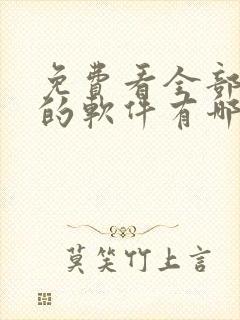 免費看全部
的軟件有哪
莫笑竹上言